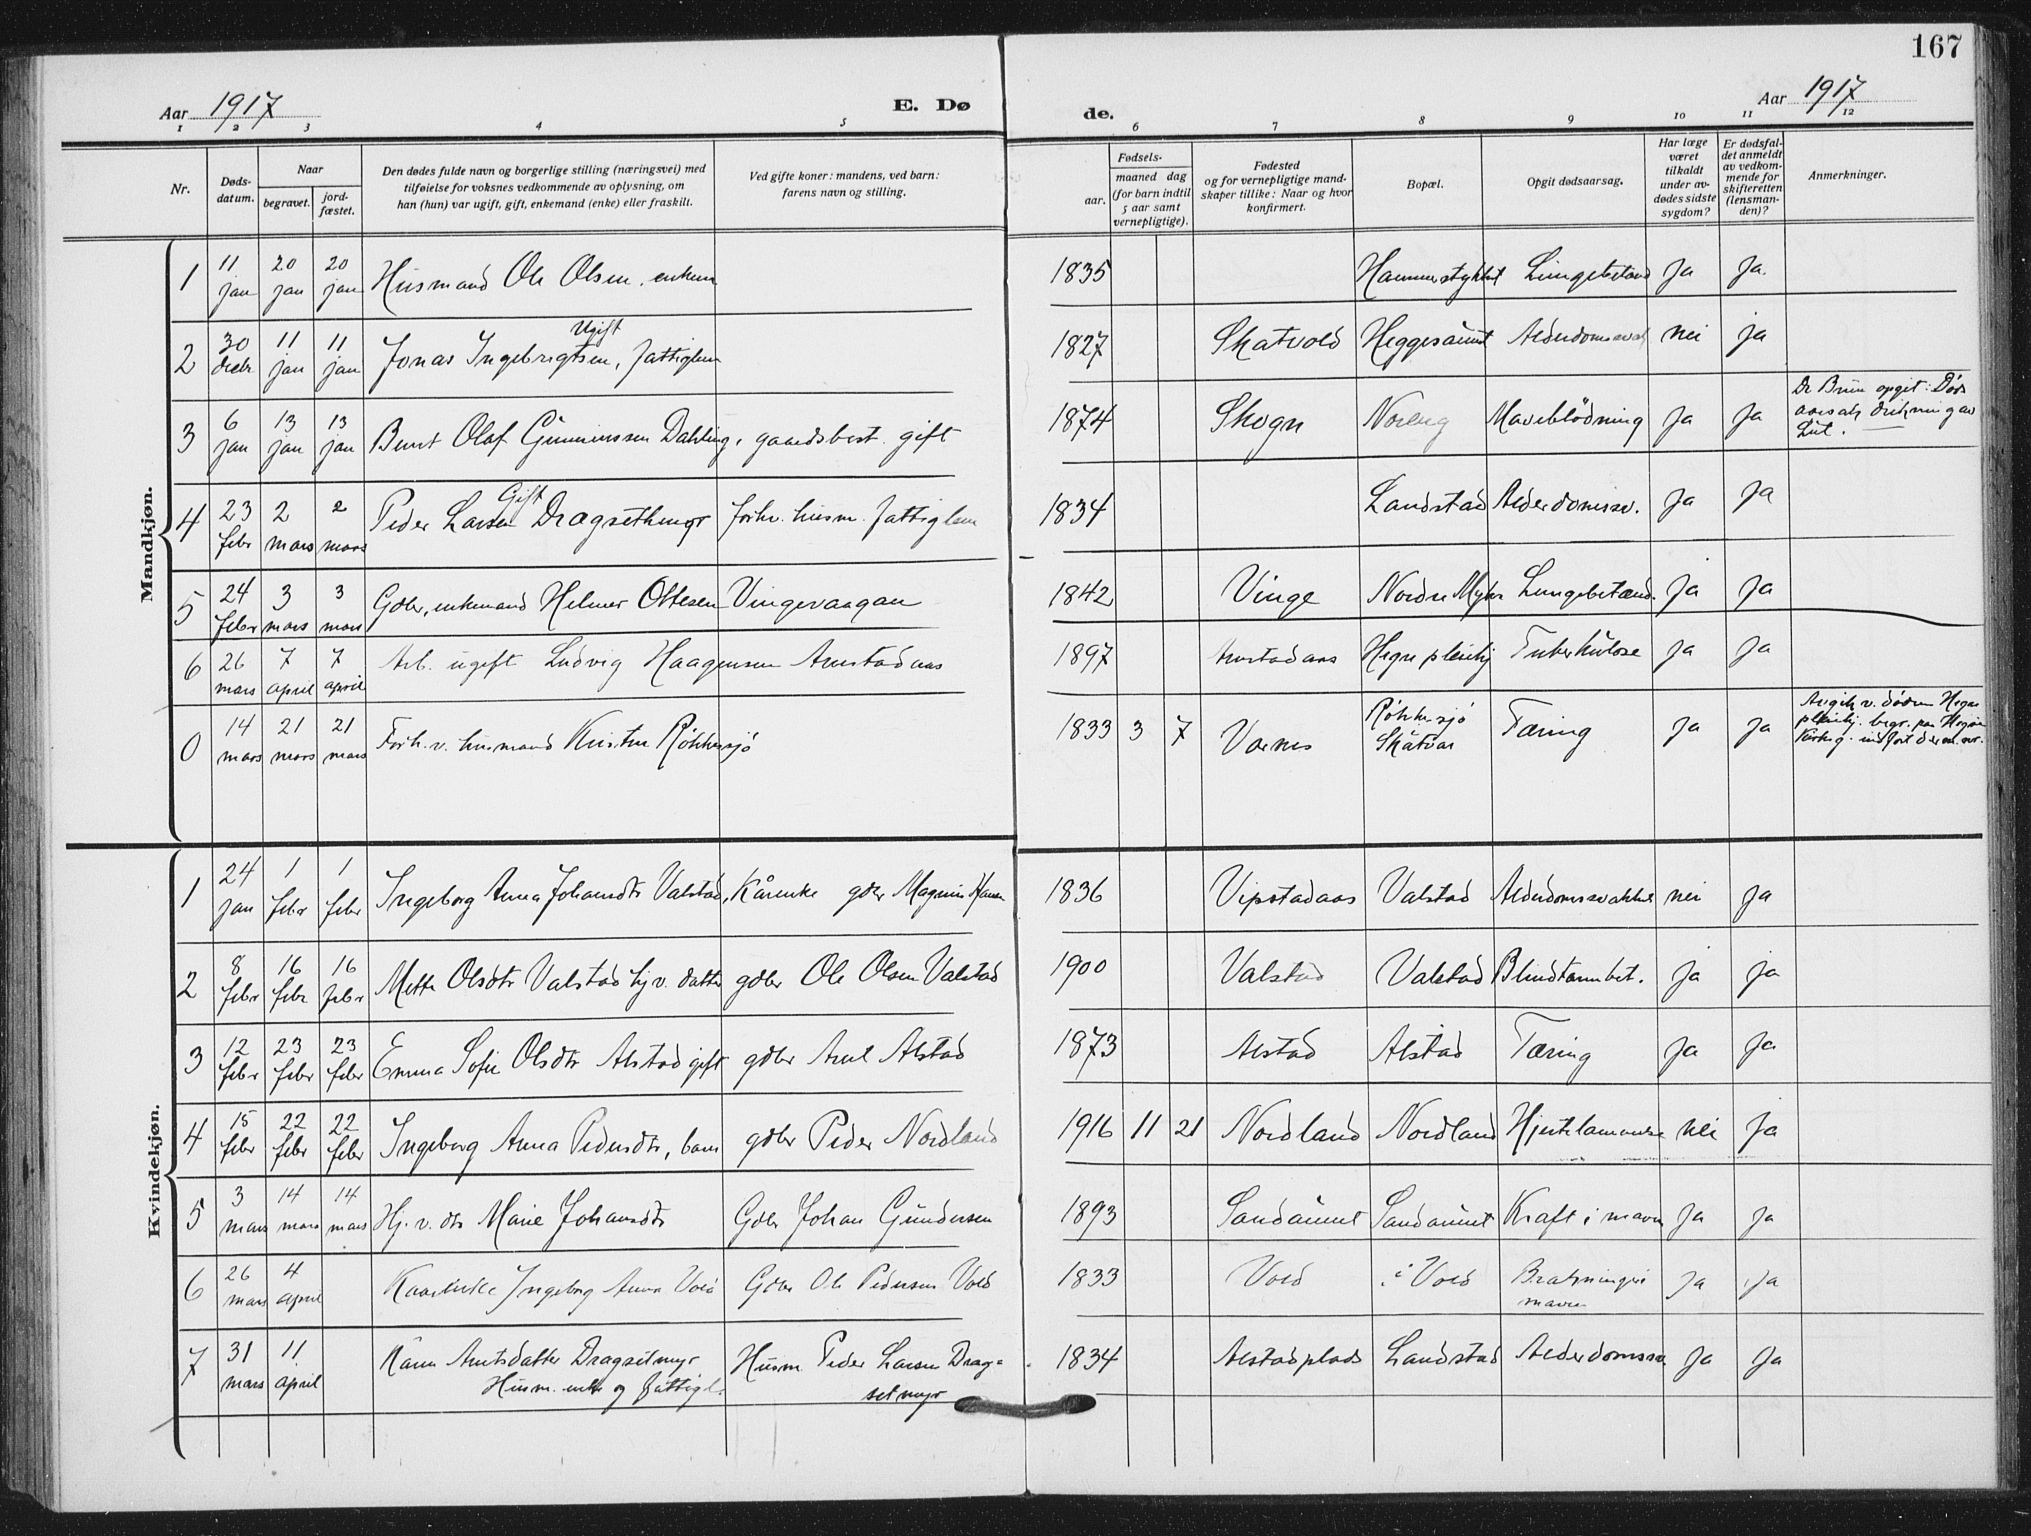 167
Aar 1917 E. Døde. Aar 1917
1 2 3 4 5 6 7 8 9 10 11 12
Nr. Dødsdatum. Naar begravet. jordfæstet. Den dødes fulde navn og borgerlige stilling (næringsvei) med tilføielse for voksnes vedkommende av oplysning, om han (hun) var ugift, gift, enkemand (enke) eller fraskilt. Ved gifte koner: mandens, ved barn: farens navn og stilling. Fødsels- aar. maaned dag (for barn indtil 5 aar samt vernepligtige). Fødested og for vernepligtige mandskaper tillike: Naar og hvor konfirmert. Bopæl. Opgit dødsaarsag. Har læge været tilkaldt under avdødes sidste sygdom? Er dødsfaldet anmeldt av vedkommende for skifteretten (lensmanden)? Anmerkninger.
Mandkjøn.
1 11 jan 20 jan 20 jan Husmand Ole Olsen, enkem 1835 Hammerstykket Lungebetænd ja ja.
2 30 decbr 11 jan 11 jan Jonas Ingebrigtsen, Ugift fattiglem 1827 Skatvold Heggesaunet Alderdomssvak nei ja
3 6 jan 13 jan 13 jan Bernt Olaf Gunnerussen Dahling, gaardsbest. gift 1874 Skogn Noreng Maveblødning ja ja Dr Bruun opgit: Døds aarsak drikning av Lut.
4 23 febr 2 mars 2 mars Peder Larsen Gift Dragsethmyr forhv. husm. fattiglem 1834 Landstad Alderdomssv. ja ja
5 24 febr 3 mars 3 mars Gdbr, enkemand Helmer Ottesen Vingevaagan 1842 Vinge Nordre Myhr Lungebetænd. ja ja
6 26 mars 7 april 7 april Arb. ugift Ludvig Haagensen Arnstadaas 1897 Arnstadaas Hegre pleiehj Tuberkulose ja ja
0 14 mars 21 mars 21 mars Forh. v. husmand Kristen Røkkesjø 1833 3 7 Værnes Røkkesjø Skatval Tæring ja ja Avgik v. døden Hegre pleiehj. begr. paa Hegre Kirkeg. indført der m. nr.
Kvindekjøn.
1 24 jan 1 febr 1 febr Ingeborg Anna Johansdtr Valstad, Kårenke gdbr Magnus Hansen 1836 Vipstadaas Valstad Alderdomssvakhet nei ja
2 8 febr 16 febr 16 febr Mette Olsdtr Valstad hj v. datter gdbr Ole Olsen Valstad 1900 Valstad Valstad Blindtarmbet. ja ja
3 12 febr 23 febr 23 febr Emma Sofie Olsdtr Alstad gift gdbr Arnt Alstad 1873 Alstad Alstad Tæring ja ja
4 15 febr 22 febr 22 febr Ingeborg Anna Pedersdtr, barn gdbr Peder Nordland 1916 11 21 Nordland Nordland Hjertelammelse nei ja
5 3 mars 14 mars 14 mars Hj. v. dtr Marie Johansdtr Gdbr Johan Gundersen 1893 Sandaunet Sandaunet Kræft i maven ja ja
6 26 mars 4 april Kaarenke Ingeborg Anna Vold Gdbr Ole Pedersen Vold 1833 Vold Vold Brækninger maven ja ja
7 31 mars 11 april Karen Arntsdatter Dragsetmyr Husm. enke og fattigl. Husm Peder Larsen Dragsetmyr 1834 Alstadplads Landstad Alderdomssv ja ja